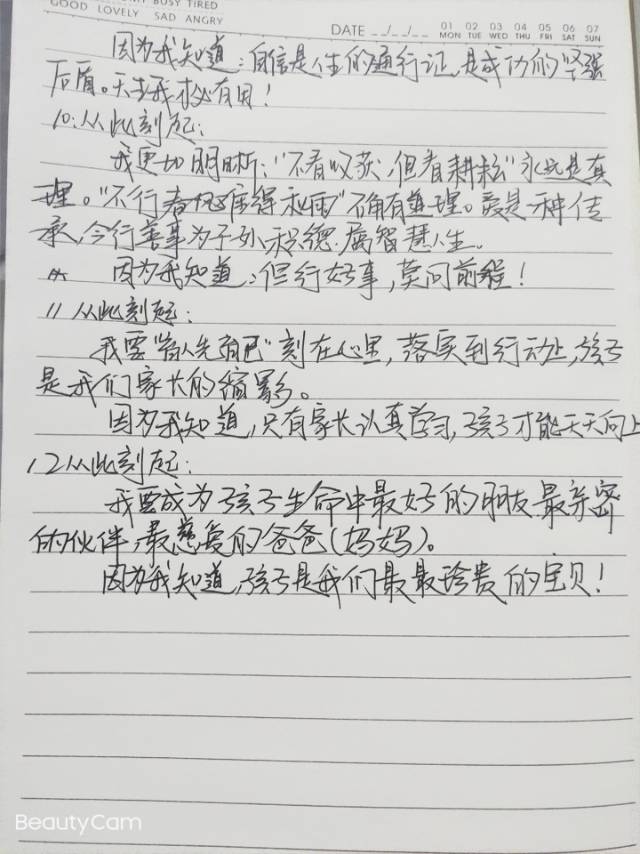 BUSY TIRED
GOOD LOVELY SAD ANGRY
DATE __/__/__
01 02 03 04 05 06 07
MON TUE WED THU FRI SAT SUN
因为我知道:自信是人生的通行证,是成功的坚强
后盾。天生我才必有用!
10.从此刻起:
我更加明晰:“不看收获,但看耕耘”永远是真
理。“不行春风难得秋雨”不离有道理。爱是一种传
承,今行善事为子孙积德,属智慧人生。
因为我知道:但行好事,莫问前程!
11 从此刻起:
我要“育人先育己”刻在心里,落实到行动上,孩子
是我们家长的缩影。
因为我知道,只有家长认真学习,孩子才能天天向上
12从此刻起:
我要成为孩子生命中最好的朋友最亲密
的伙伴,最慈爱的爸爸(妈妈)。
因为我知道,孩子是我们最最珍贵的宝贝!
BeautyCam